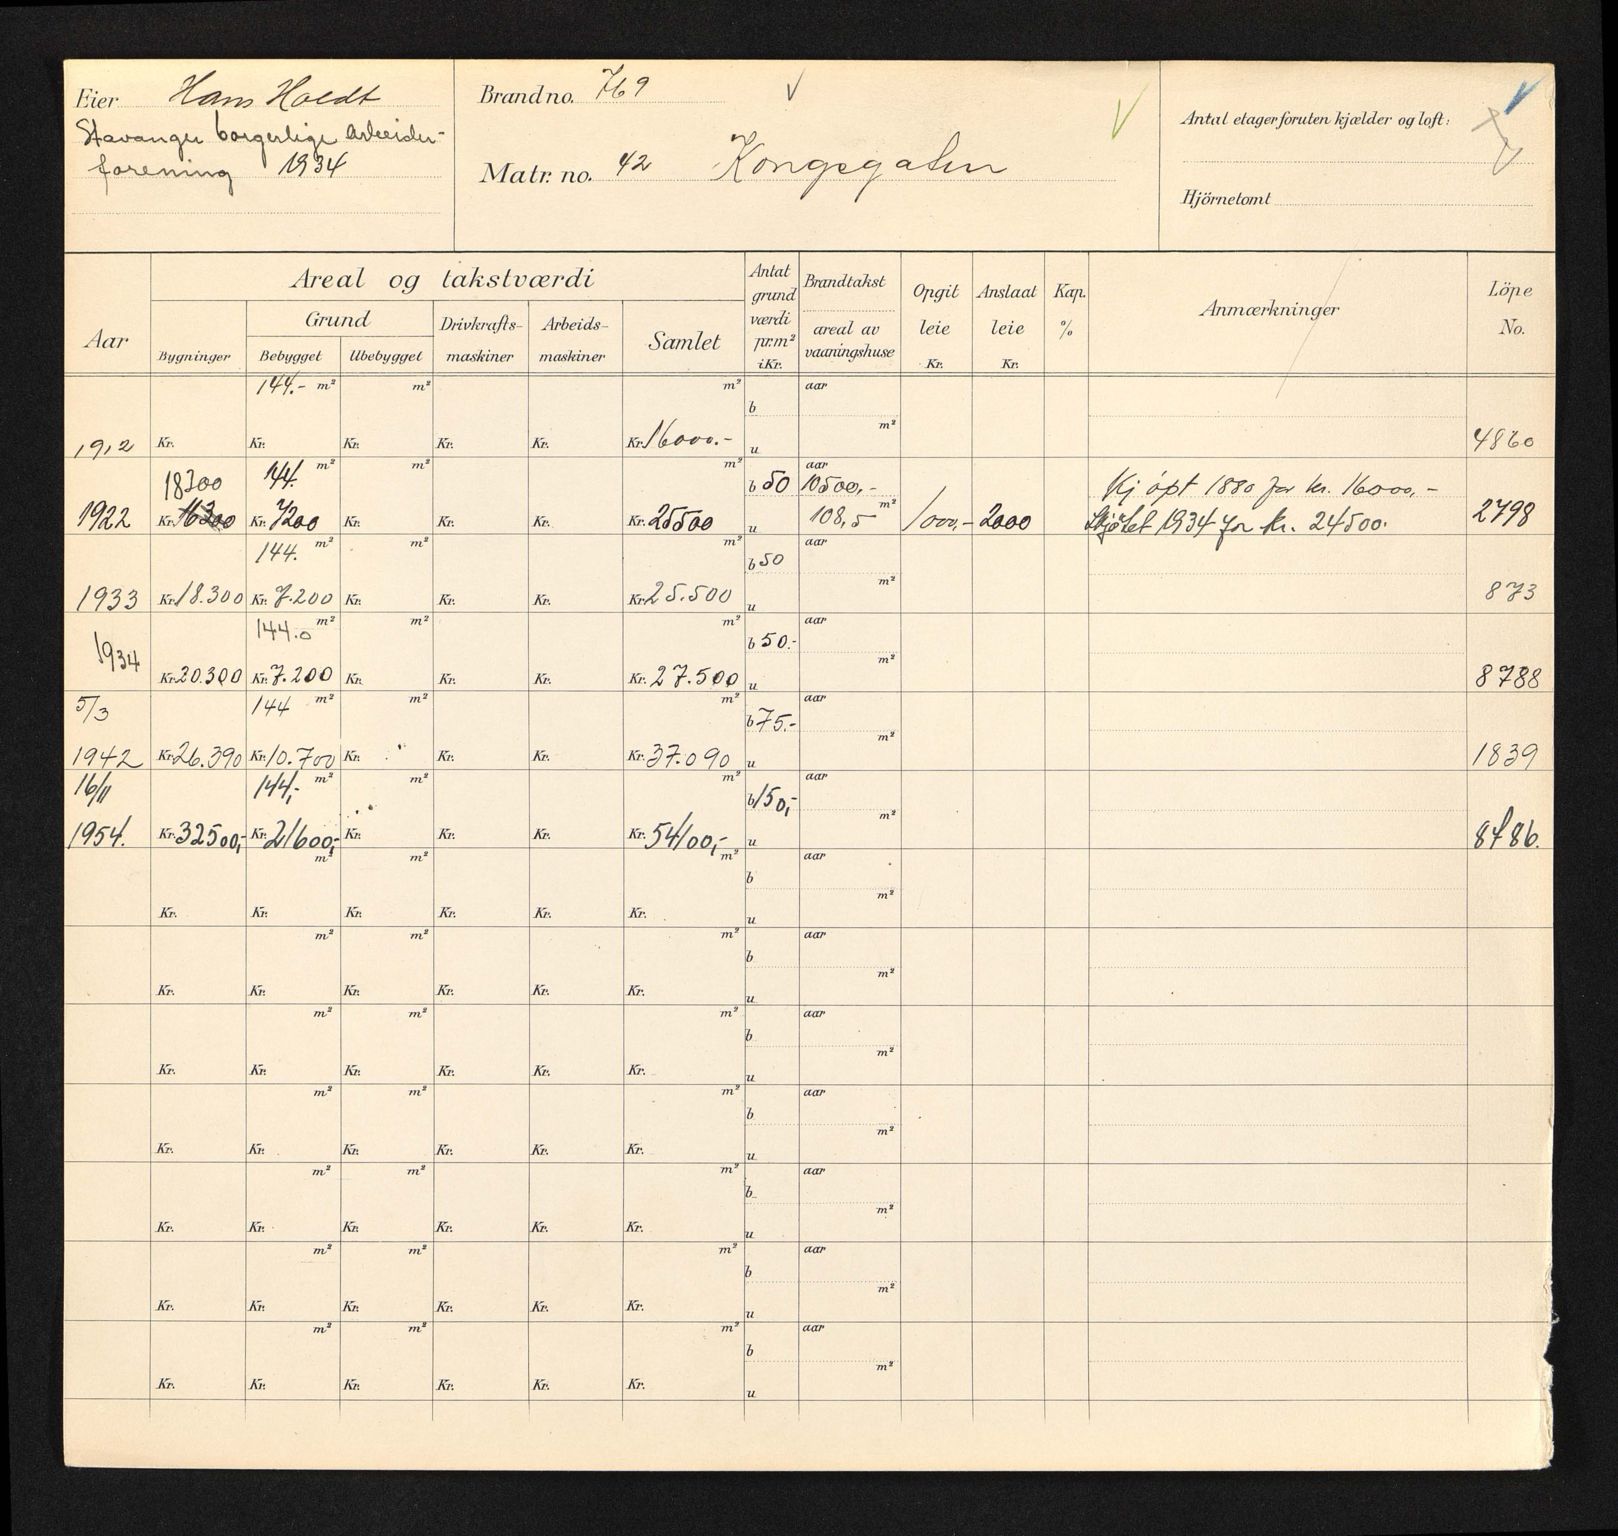 Eier Hans Holdt
Stavanger borgerlige Arbeider-
forening 1934
Brand no. 769
Matr. no. 42 Kongsgaten
Antal etager foruten kjælder og loft:
Hjörnetomt
Areal og takstværdi
Aar
Bygninger
Grund
Bebygget
Ubebygget
Drivkrafts-
maskiner
Arbeids-
maskiner
Samlet
Antat
grund
værdi
pr. m²
i Kr.
Brandtakst
areal av
vaaningshuse
Opgit
leie
Kr.
Anslaat
leie
Kr.
Kap.
%
Anmærkninger
Löpe
No.
144.- m² m² m² b aar
m²
1912 Kr. Kr. Kr. Kr. Kr. Kr. 16000.- u 4860
18300 144. m² m² m² b 50 aar 10500,- Kjöpt 1880 for kr. 16000,-
1922 Kr. 16300 Kr. 7200 Kr. Kr. Kr. Kr. 25500 u 108,5 m² 1000,- 2000 Skjötet 1934 for kr. 24500. 2798
144. m² m² m² b 50 aar
m²
1933 Kr. 18.300 Kr. 7.200 Kr. Kr. Kr. Kr. 25.500 u 873
144.0 m² m² m² b 50.- aar
m²
1934 Kr. 20.300 Kr. 7.200 Kr. Kr. Kr. Kr. 27.500 u 8788
5/3 144 m² m² m² b 75.- aar
m²
1942 Kr. 26.390 Kr. 10.700 Kr. Kr. Kr. Kr. 37.090 u 1839
16/11 144,- m² m² m² b 150,- aar
m²
1954. Kr. 32500,- Kr. 21600,- Kr. Kr. Kr. Kr. 54100,- u
m² m² m² b aar
m²
Kr. Kr. Kr. Kr. Kr. Kr. u
m² m² m² b aar
m²
Kr. Kr. Kr. Kr. Kr. Kr. u
m² m² m² b aar
m²
Kr. Kr. Kr. Kr. Kr. Kr. u
m² m² m² b aar
m²
Kr. Kr. Kr. Kr. Kr. Kr. u
m² m² m² b aar
m²
Kr. Kr. Kr. Kr. Kr. Kr. u
m² m² m² b aar
m²
Kr. Kr. Kr. Kr. Kr. Kr. u
m² m² m² b aar
m²
Kr. Kr. Kr. Kr. Kr. Kr. u